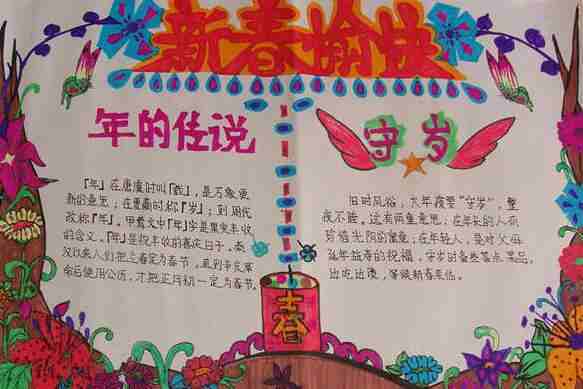 新春愉快
年的传说
「年」在唐虞时叫「载」，是万象更
新的意思；在夏商时称「岁」；到周代
改称「年」。甲骨文中「年」字是果实丰收
的含义。「年」是 丰收的喜庆日子。秦
汉以来人们把立春定为春节，直到辛亥革
命后使用公历，才把正月初一定为春节。
守岁
旧时风俗，大年夜要“守岁”，整
夜不睡，这有两重意思：在年长的人有
珍惜光阴的寓意；在年轻人，是对父母
延年益寿的祝福，守岁时备些茶点果品，
边吃边谈，等候新春来临。
春